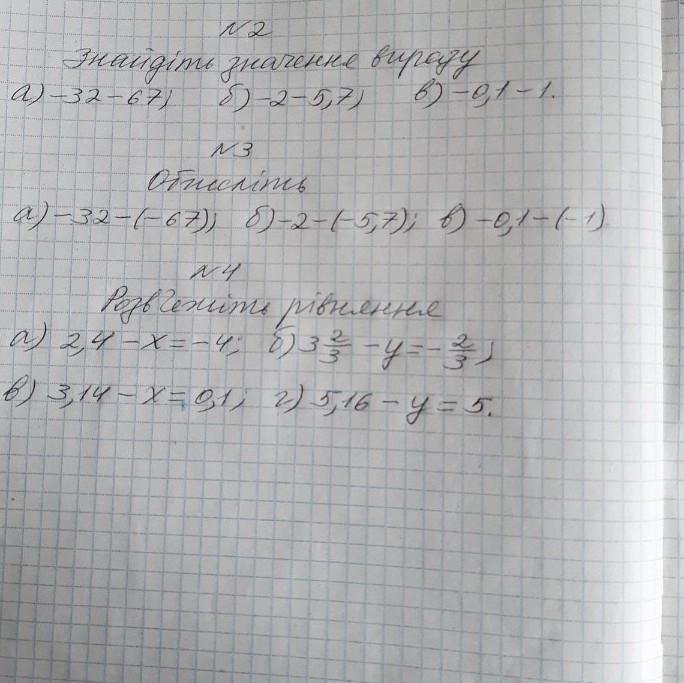 №2
Знайдіть значення виразу
а) -32-67; б) -2-5,7; в) -0,1-1.
№3
Обчисліть
а) -32-(-67); б) -2-(-5,7); в) -0,1-(-1)
№4
Розв'яжіть рівняння
а) 2,4-x=-4; б) 3 2/3 - y = - 2/3;
в) 3,14-x=0,1; г) 5,16-y=5.